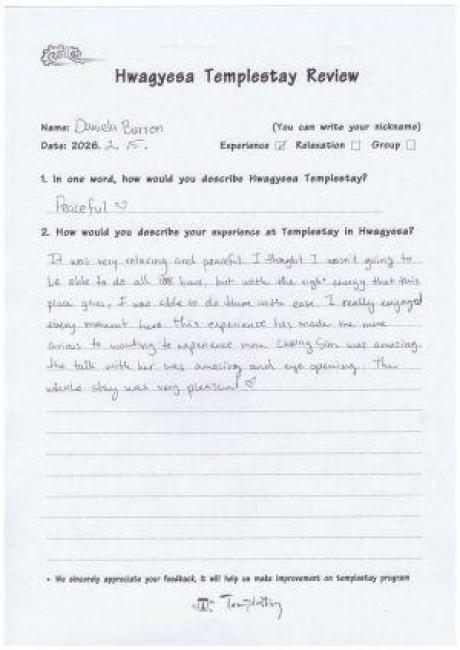 Hwagyesa Templestay Review
Name: Daniela Barron (You can write your nickname)
Date: 2026. 2. 15. Experience ☑ Relaxation ☐ Group ☐
1. In one word, how would you describe Hwagyesa Templestay?
Peaceful ♡
2. How would you describe your experience at Templestay in Hwagyesa?
It was very relaxing and peaceful. I thought I wasn't going to
be able to do all 108 bows, but with the right energy that this
place gives, I was able to do them with ease. I really enjoyed
every moment here. This experience has made me more
curious to wanting to experience more. Cheong Sim was amazing.
The talk with her was amazing and eye opening. The
whole stay was very pleasant ♡
• We sincerely appreciate your feedback, it will help us make improvement on templestay program
Templestay